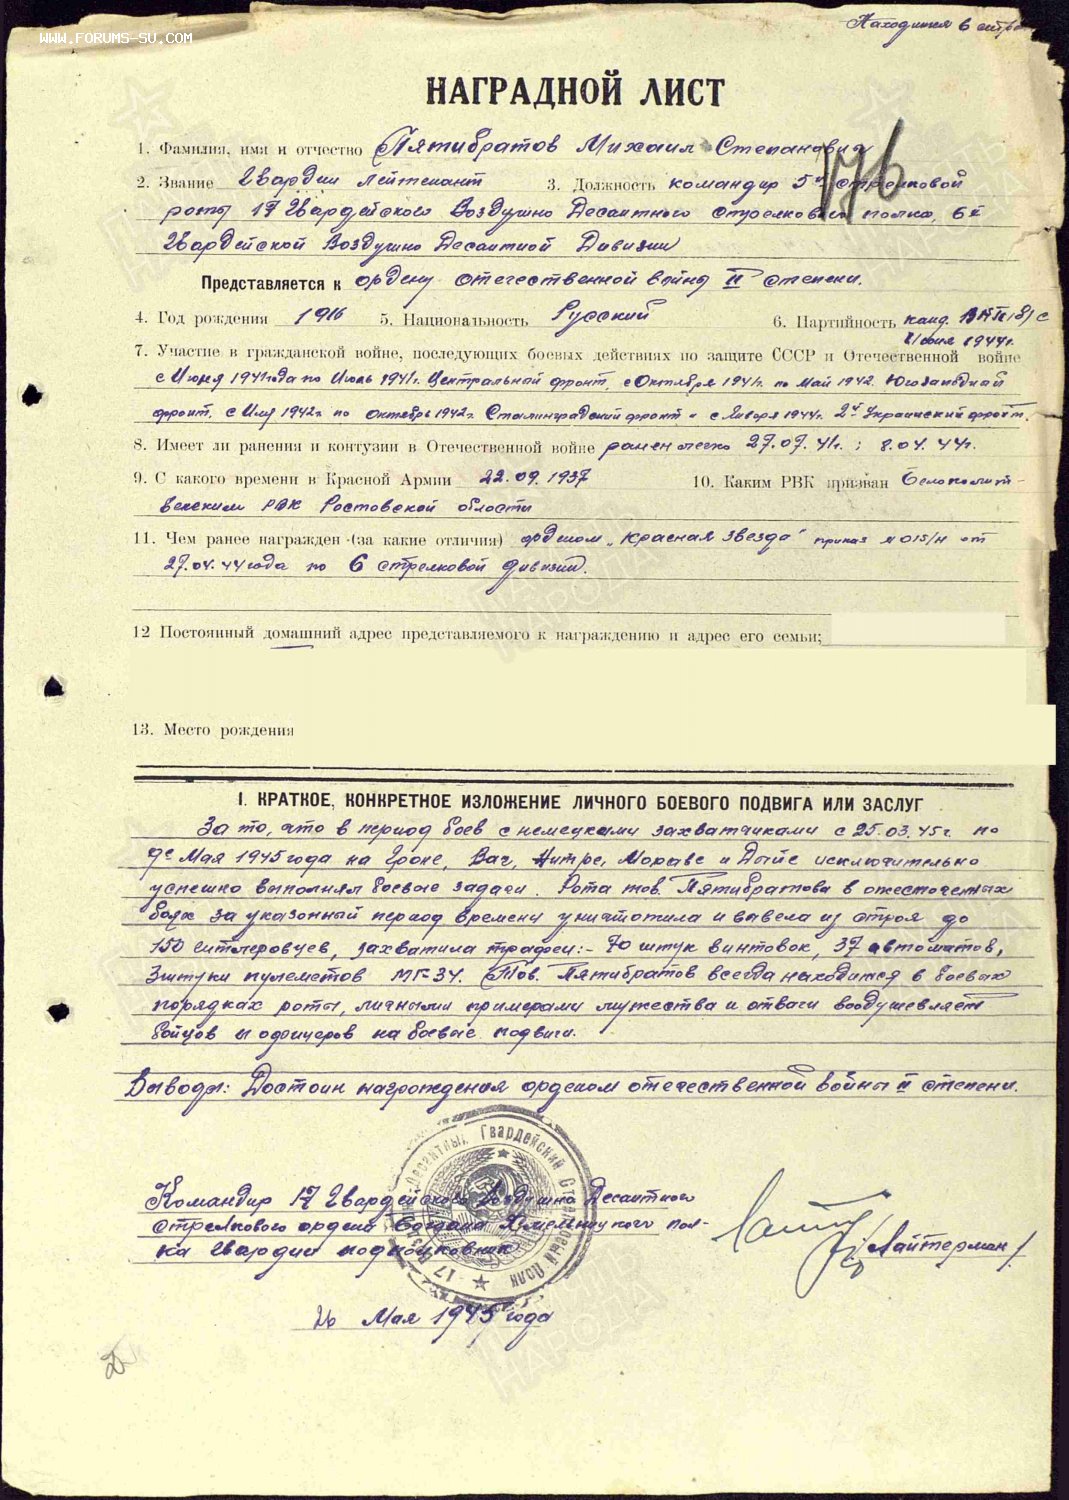 WWW.FORUMS-SU.COM
Находится в
НАГРАДНОЙ ЛИСТ
176
1. Фамилия, имя и отчество Пятибратов Михаил Степанович
2. Звание Гвардии Лейтенант 3. Должность командир 5й стрелковой
роты 17 Гвардейского Воздушно Десантного стрелкового полка, 6й
Гвардейской Воздушно Десантной Дивизии
Представляется к ордену отечественной войны II степени.
4. Год рождения 1916 5. Национальность Русский 6. Партийность канд. ВКП(б) с
июня 1944г.
7. Участие в гражданской войне, последующих боевых действиях по защите СССР и Отечественной войне
с Июня 1941года по Июль 1941г. Центральный фронт, с Октября 1941г. по Май 1942. Югозападный
фронт, с 1942г по октябрь 1942г. Сталинградский фронт и с Января 1944г. 2й Украинский фронт.
8. Имеет ли ранения и контузии в Отечественной войне ранен легко 27.07.41г.; 8.04.44г.
9. С какого времени в Красной Армии 22.09.1937 10. Каким РВК призван Белокалит-
венским РВК Ростовской области
11. Чем ранее награжден (за какие отличия) орденом „Красная звезда" приказ N 015/н от
27.04.44года по 6 стрелковой дивизии.
12 Постоянный домашний адрес представляемого к награждению и адрес его семьи;
13. Место рождения
I. КРАТКОЕ, КОНКРЕТНОЕ ИЗЛОЖЕНИЕ ЛИЧНОГО БОЕВОГО ПОДВИГА ИЛИ ЗАСЛУГ
За то, что в период боев с немецкими захватчиками с 25.03.45г. по
9е Мая 1945года на Гроне, Ваг, Нитре, Мораве и Дыйе исключительно
успешно выполнял боевые задачи. Рота тов. Пятибратова в ожесточенных
боях за указонный период времени уничтожила и вывела из строя до
150 гитлеровцев, захватила трофеи:- 70 штук винтовок, 37 автоматов,
3штуки пулеметов МГ-34. Тов. Пятибратов всегда находится в боевых
порядках роты, личными примерами мужества и отваги воодушевляет
бойцов и офицеров на боевые подвиги.
Выводы: Достоин награждения орденом отечественной войны II степени.
Командир 17 Гвардейского Воздушно Десантного
стрелкового ордена Богдана Хмельницкого пол-
ка гвардии подполковник
/Лайтерман/
Десантных Гвардейский Стрелковый Полк 17
26 Мая 1945 года